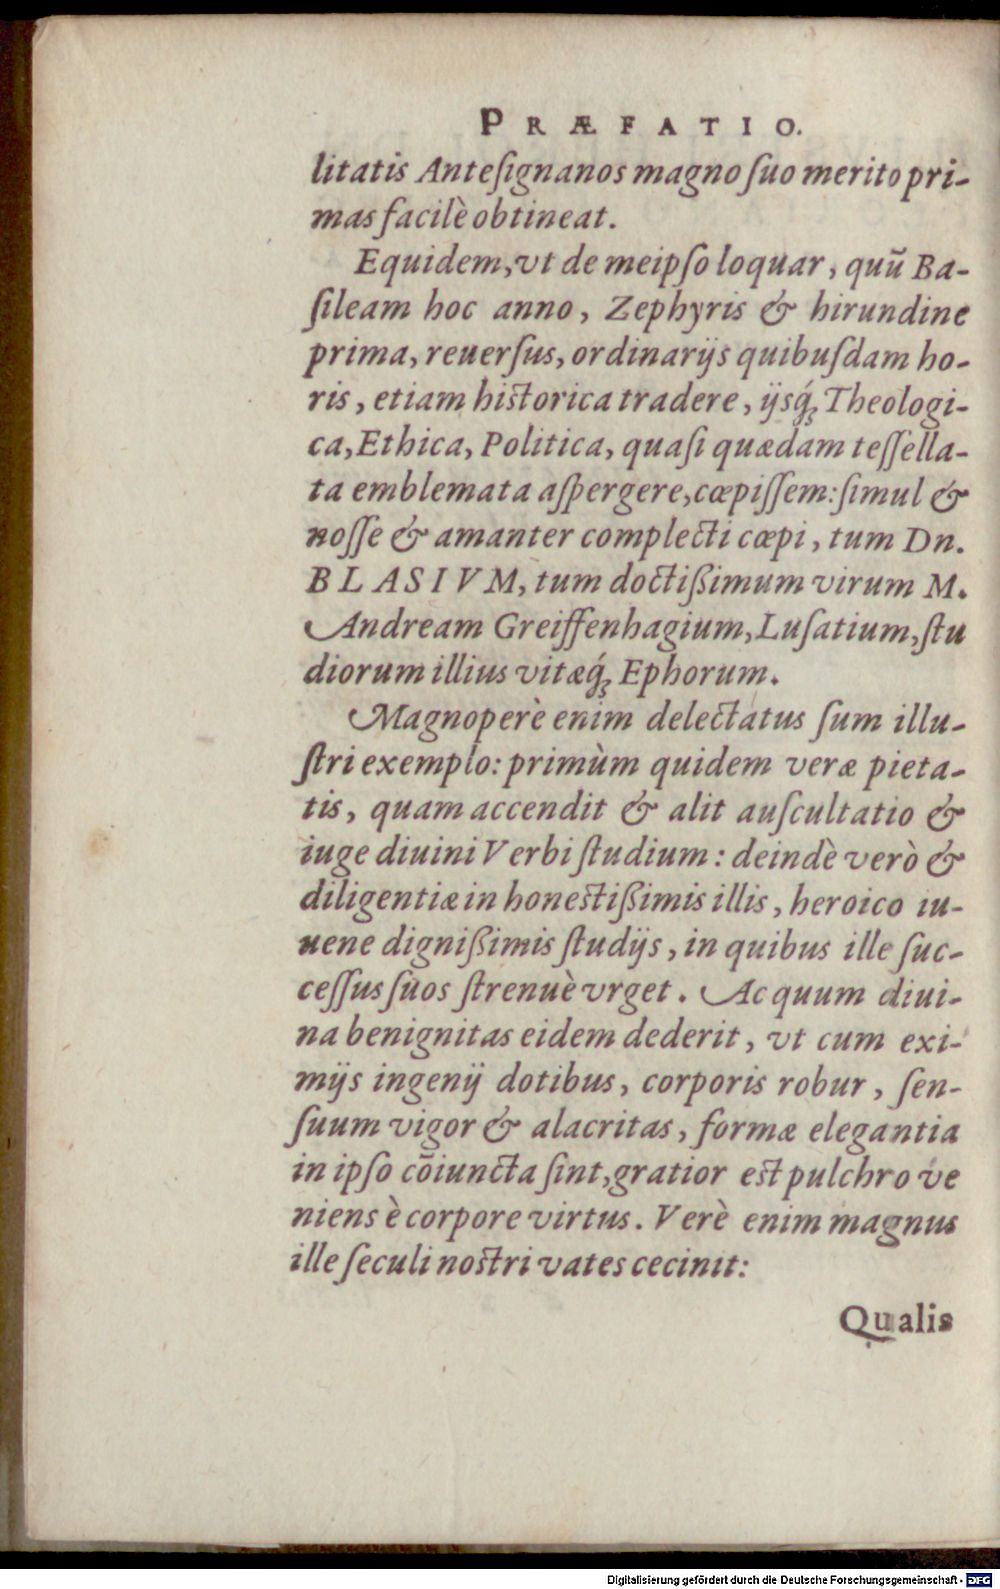 PRÆFATIO.
litatis Anteſignanos magno ſuo merito pri-
mas facilè obtineat.
Equidem, vt de meipſo loquar, quũ Ba-
ſileam hoc anno, Zephyris & hirundine
prima, reuerſus, ordinarijs quibuſdam ho-
ris, etiam historica tradere, ijsq́; Theologi-
ca, Ethica, Politica, quaſi quædam teſſella-
ta emblemata aſpergere, cœpiſſem: ſimul &
noſſe & amanter complecti cœpi, tum Dn.
BLASIVM, tum doctißimum virum M.
Andream Greiffenhagium, Luſatium, ſtu
diorum illius vitæq́; Ephorum.
Magnoperè enim delectatus ſum illu-
ſtri exemplo: primùm quidem veræ pieta-
tis, quam accendit & alit auſcultatio &
iuge diuini Verbi ſtudium: deindè verò &
diligentiæ in honestißimis illis, heroico iu-
uene dignißimis ſtudijs, in quibus ille ſuc-
ceſſus ſuos ſtrenuè vrget. Ac quum diui-
na benignitas eidem dederit, vt cum exi-
mijs ingenij dotibus, corporis robur, ſen-
ſuum vigor & alacritas, formæ elegantia
in ipſo cõiuncta ſint, gratior est pulchro ve
niens è corpore virtus. Verè enim magnus
ille ſeculi nostri vates cecinit:
Qualis
Digitalisierung gefördert durch die Deutsche Forschungsgemeinschaft - DFG